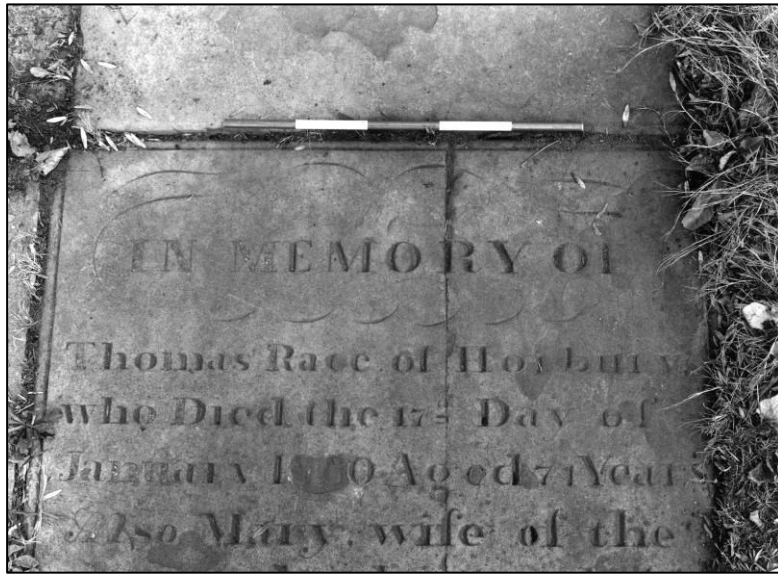 IN MEMORY OF
Thomas Race of Horbury,
who Died the 17th Day of
January Aged 71 Years
Also Mary wife of the